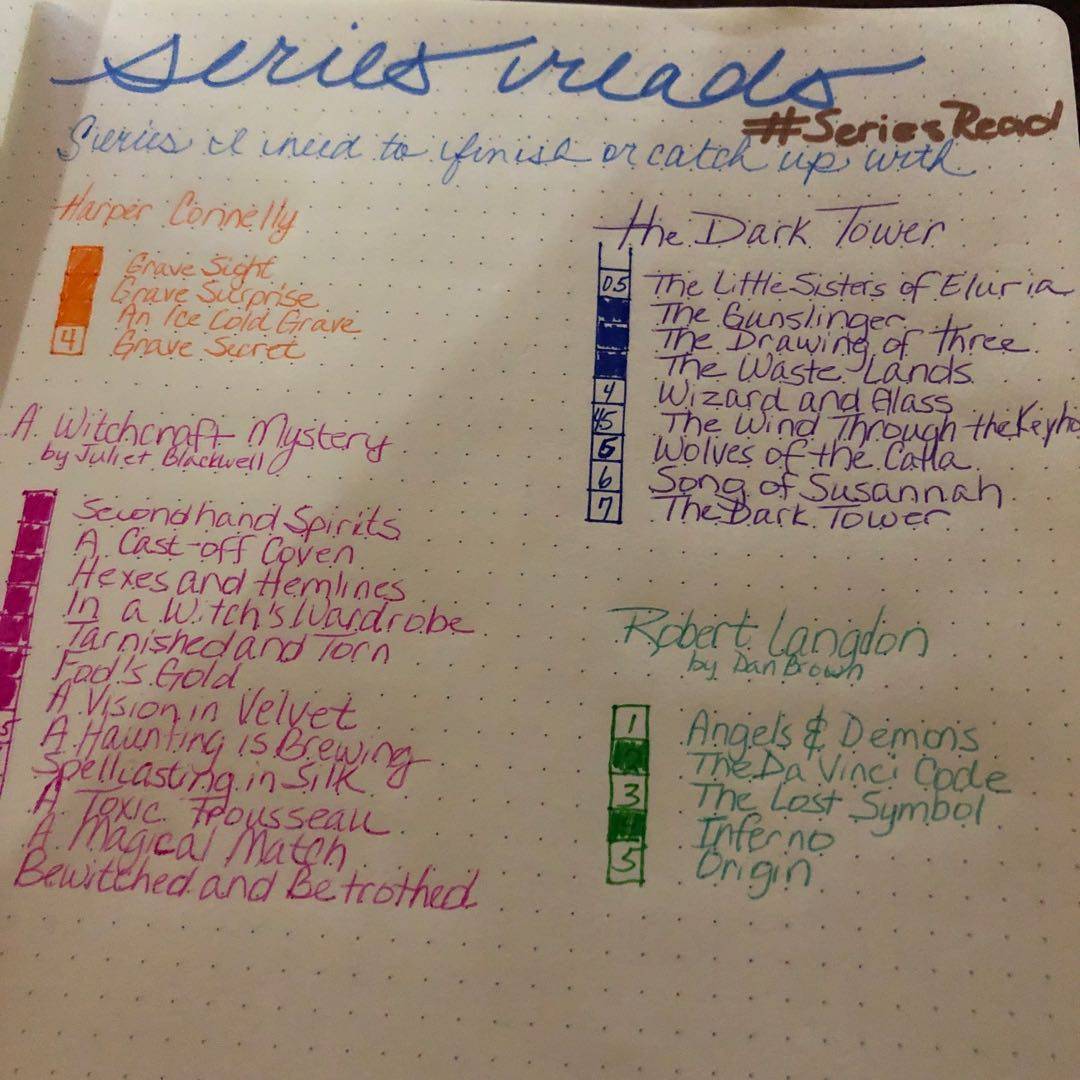 series reads
#SeriesRead
Series I need to finish or catch up with
Harper Connelly
Grave Sight
Grave Surprise
An Ice Cold Grave
4 Grave Secret
A Witchcraft Mystery
by Juliet Blackwell
Secondhand Spirits
A Cast-off Coven
Hexes and Hemlines
In a Witch's Wardrobe
Tarnished and Torn
Fool's Gold
A Vision in Velvet
A Haunting is Brewing
Spellcasting in Silk
A Toxic Trousseau
A Magical Match
Bewitched and Betrothed
The Dark Tower
0.5 The Little Sisters of Eluria
The Gunslinger
The Drawing of three
The Waste Lands
4 Wizard and Glass
4.5 The Wind Through the Keyho
5 Wolves of the Calla
6 Song of Susannah
7 The Dark Tower
Robert Langdon
by Dan Brown
1 Angels & Demons
The Da Vinci Code
3 The Lost Symbol
Inferno
5 Origin